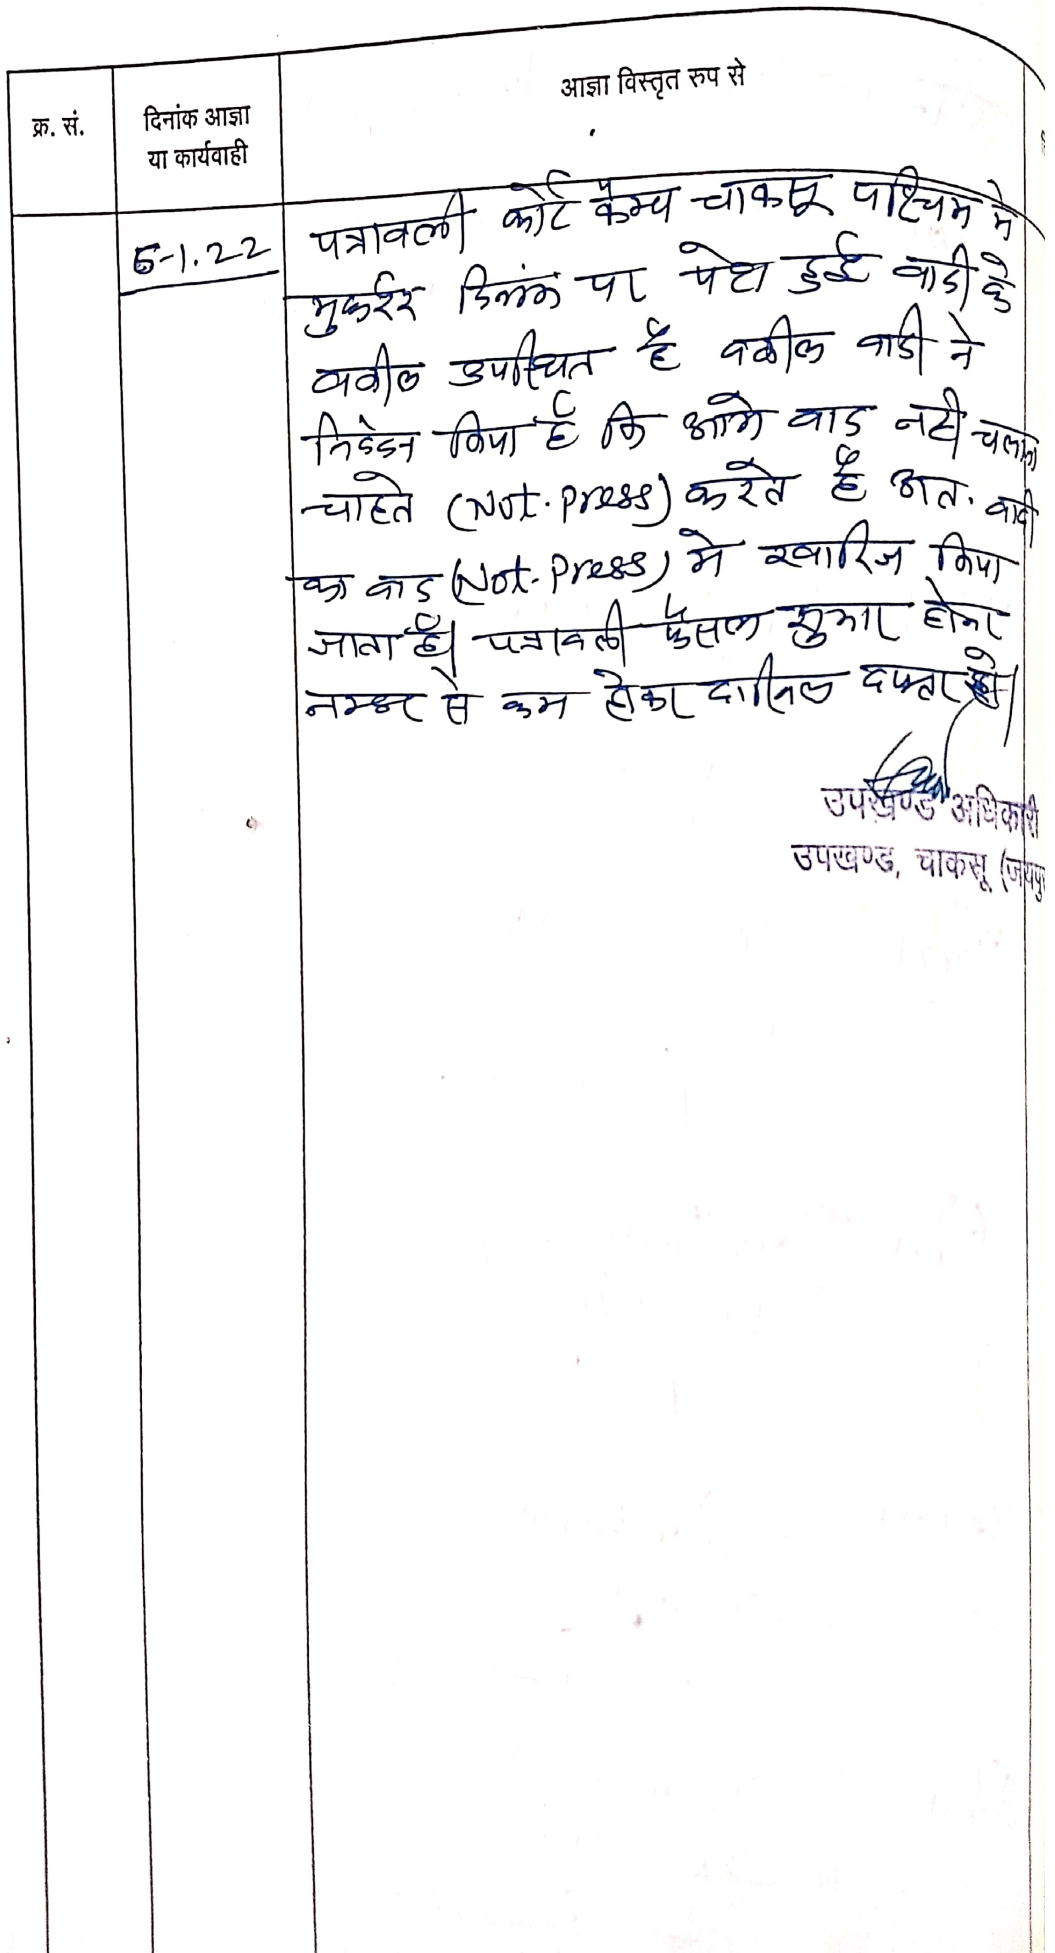 क्र. सं.
दिनांक आज्ञा
या कार्यवाही
आज्ञा विस्तृत रुप से
5-1.22
पत्रावली कोर्ट कैम्प चाकसू पश्चिम मे
मुकर्रर दिनांक पर पेश हुई वादी के
वकील उपस्थित है वकील वादी ने
निवेदन किया है कि आगे वाद नही चलाना
चाहते (Not. Press) करते है अतः वादी
का वाद (Not-Press) मे खारिज किया
जाता है। पत्रावली फैसल शुमार होकर
नम्बर से कम होकर दाखिल दफ्तर हो।
उपखण्ड अधिकारी
उपखण्ड, चाकसू (जयपु